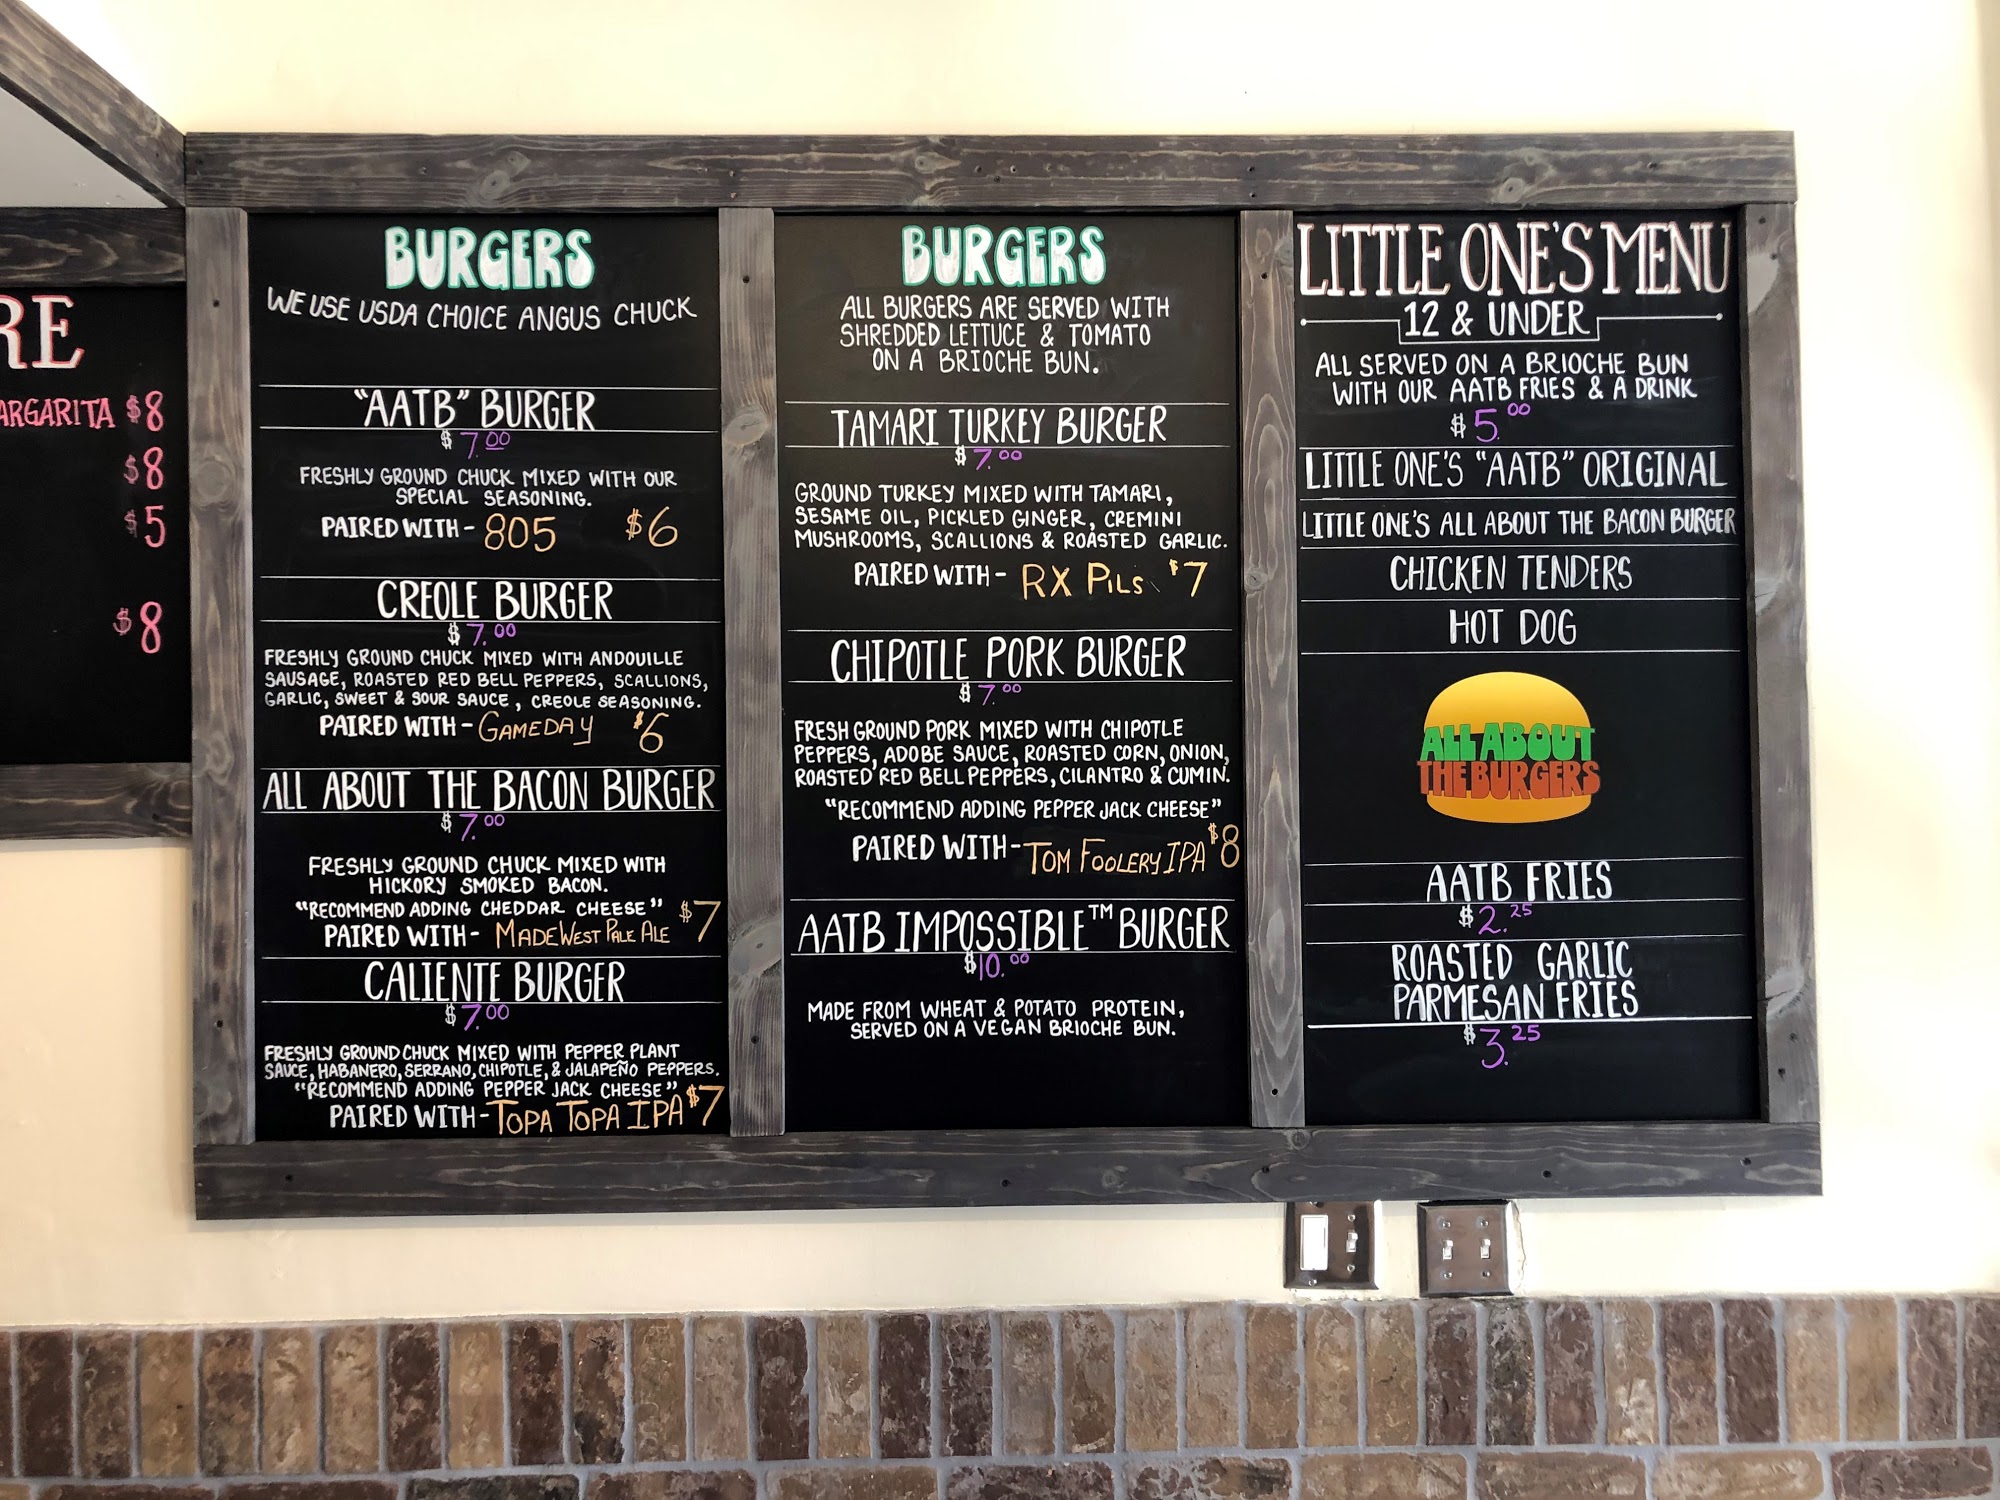 RE
ARGARITA $8
$8
$5
$8
BURGERS
WE USE USDA CHOICE ANGUS CHUCK
"AATB" BURGER
$7.00
FRESHLY GROUND CHUCK MIXED WITH OUR
SPECIAL SEASONING.
PAIRED WITH- 805 $6
CREOLE BURGER
$7.00
FRESHLY GROUND CHUCK MIXED WITH ANDOUILLE
SAUSAGE, ROASTED RED BELL PEPPERS, SCALLIONS,
GARLIC, SWEET & SOUR SAUCE, CREOLE SEASONING.
PAIRED WITH- GAMEDAY $6
ALL ABOUT THE BACON BURGER
$7.00
FRESHLY GROUND CHUCK MIXED WITH
HICKORY SMOKED BACON.
"RECOMMEND ADDING CHEDDAR CHEESE"
PAIRED WITH- MADEWEST PALE ALE $7
CALIENTE BURGER
$7.00
FRESHLY GROUND CHUCK MIXED WITH PEPPER PLANT
SAUCE, HABANERO, SERRANO, CHIPOTLE, & JALAPEÑO PEPPERS.
"RECOMMEND ADDING PEPPER JACK CHEESE"
PAIRED WITH- TOPA TOPA IPA $7
BURGERS
ALL BURGERS ARE SERVED WITH
SHREDDED LETTUCE & TOMATO
ON A BRIOCHE BUN.
TAMARI TURKEY BURGER
$7.00
GROUND TURKEY MIXED WITH TAMARI,
SESAME OIL, PICKLED GINGER, CREMINI
MUSHROOMS, SCALLIONS & ROASTED GARLIC.
PAIRED WITH- RX PILS $7
CHIPOTLE PORK BURGER
$7.00
FRESH GROUND PORK MIXED WITH CHIPOTLE
PEPPERS, ADOBE SAUCE, ROASTED CORN, ONION,
ROASTED RED BELL PEPPERS, CILANTRO & CUMIN.
"RECOMMEND ADDING PEPPER JACK CHEESE"
PAIRED WITH- TOM FOOLERY IPA $8
AATB IMPOSSIBLE™ BURGER
$10.00
MADE FROM WHEAT & POTATO PROTEIN,
SERVED ON A VEGAN BRIOCHE BUN.
LITTLE ONE'S MENU
12 & UNDER
ALL SERVED ON A BRIOCHE BUN
WITH OUR AATB FRIES & A DRINK
$5.00
LITTLE ONE'S "AATB" ORIGINAL
LITTLE ONE'S ALL ABOUT THE BACON BURGER
CHICKEN TENDERS
HOT DOG
ALL ABOUT
THE BURGERS
AATB FRIES
$2.25
ROASTED GARLIC
PARMESAN FRIES
$3.25